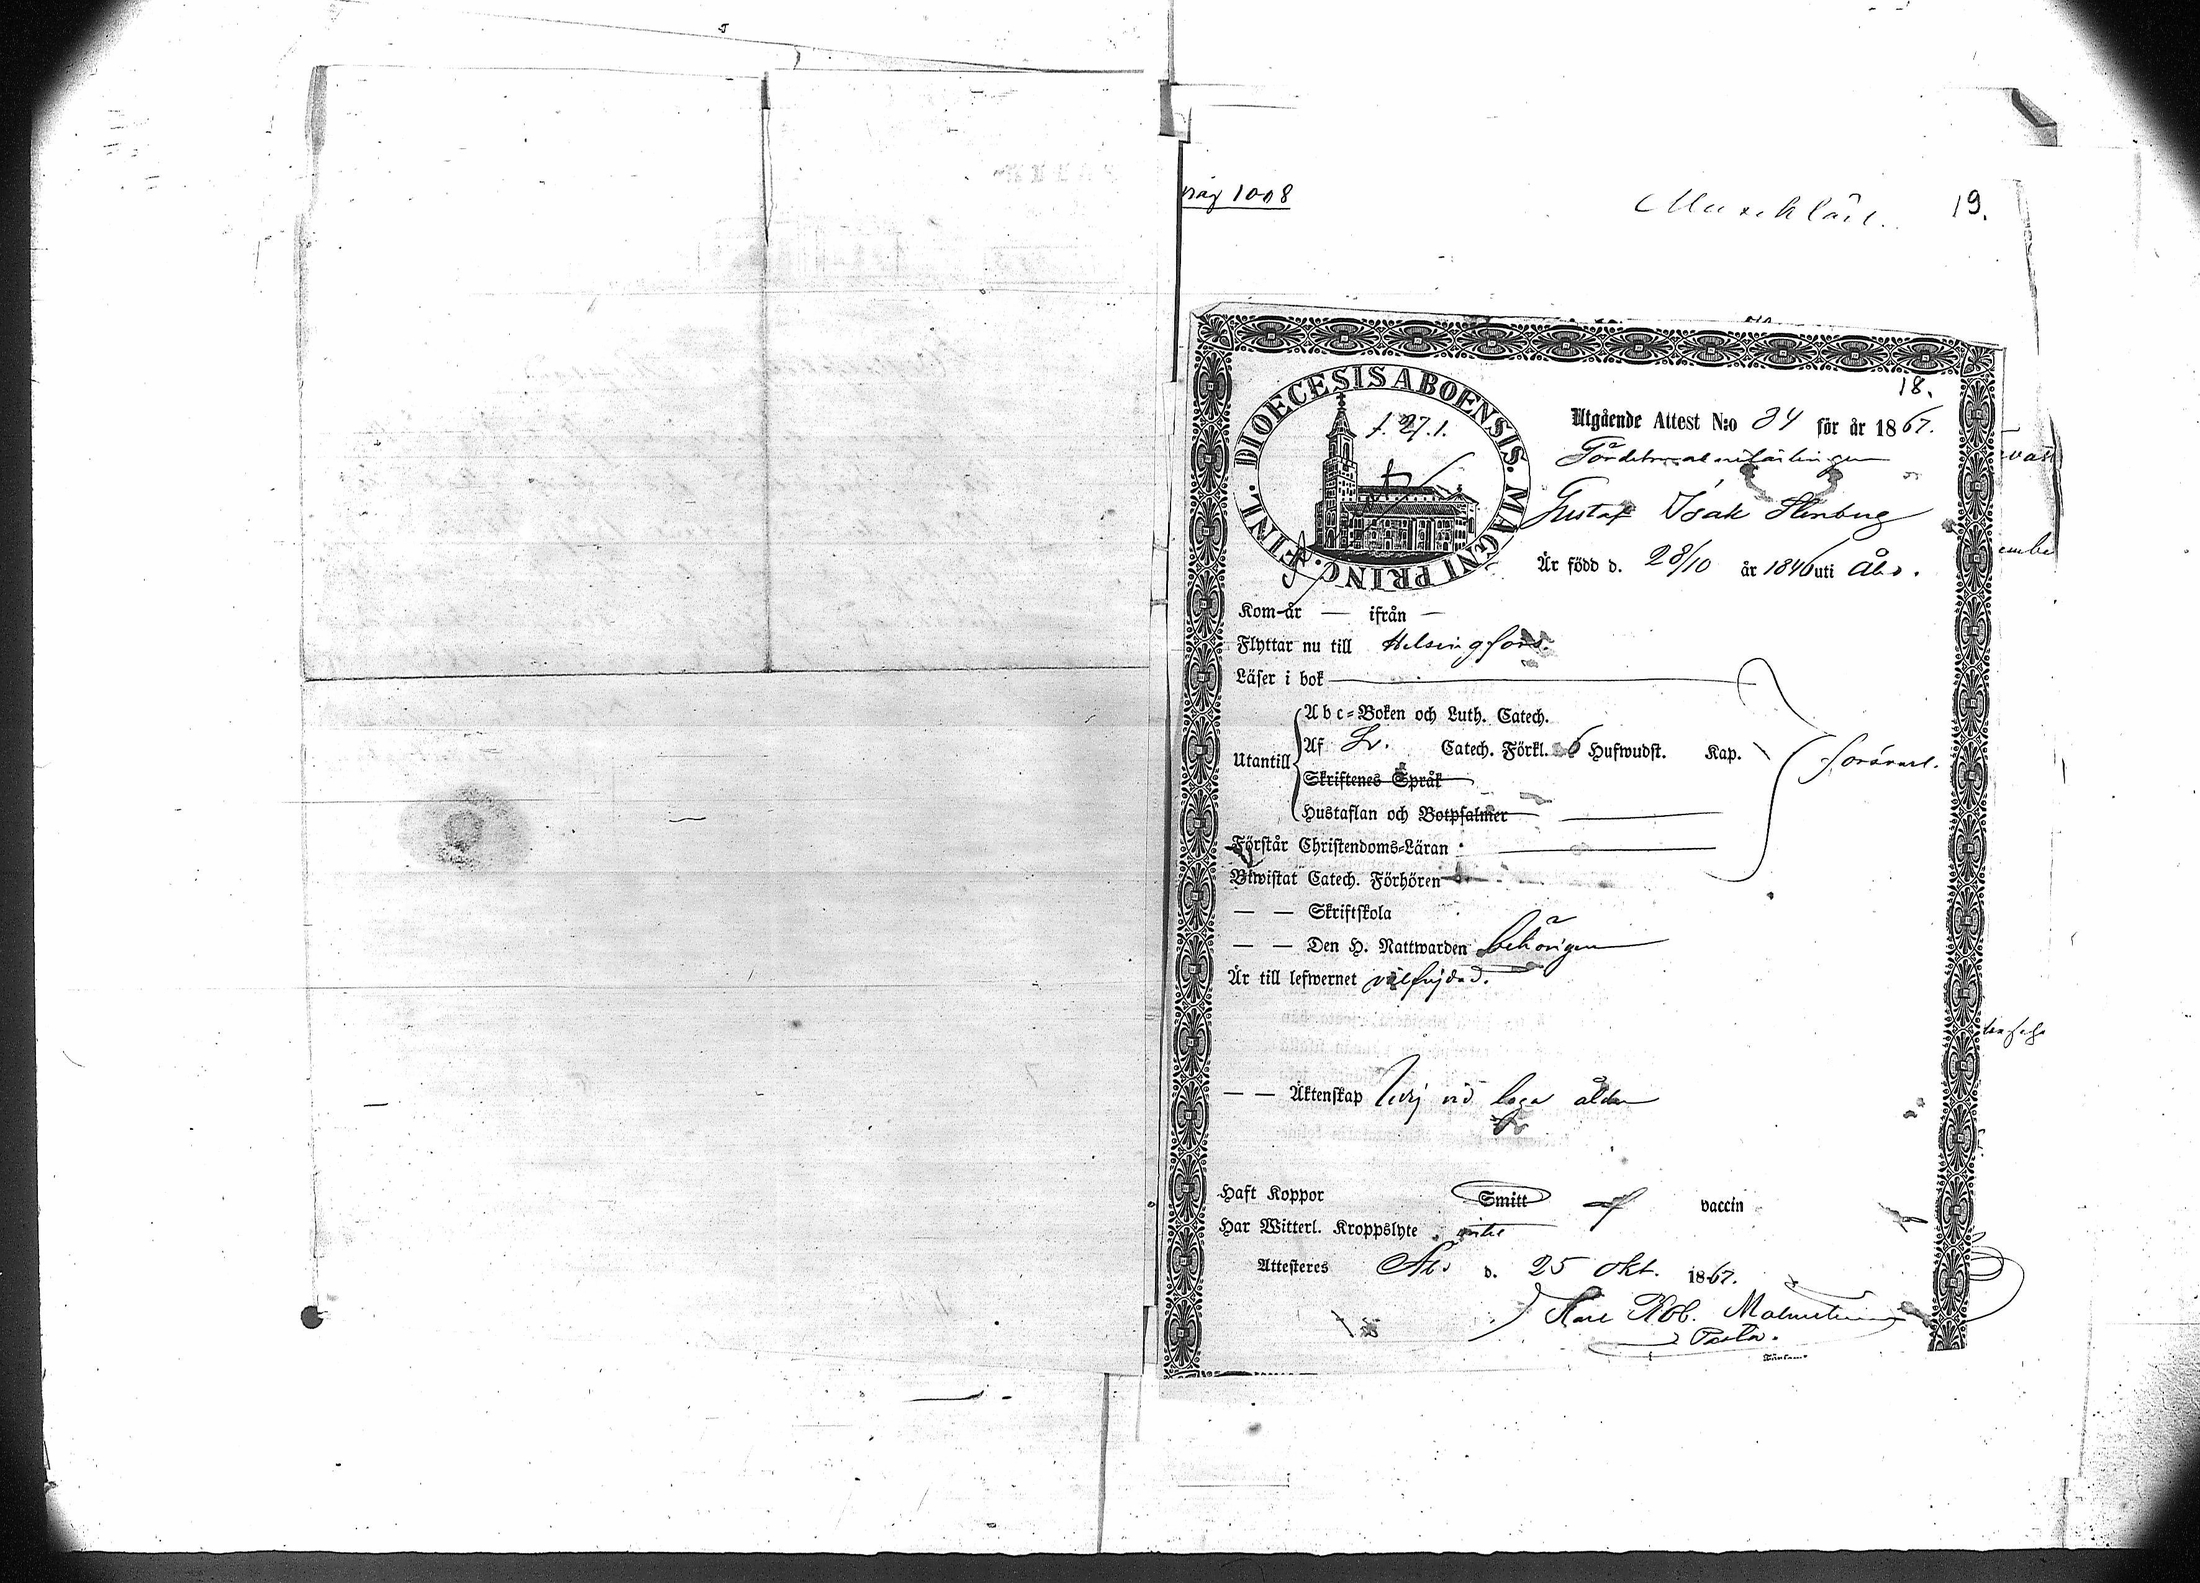 1008
19.
18.
DIOECESIS ABOENSIS. MAGNI PRINC. FINL.
f. 27.1.
Utgående Attest N:o 34 för år 1867.
Gustaf Isak Stenberg
Är född d. 28/10 år 1846 uti Åbo.
Kom år — ifrån —
Flyttar nu till Helsingfors.
Läser i bok
Abc-Boken och Luth. Catech.
Utantill
Af Sv. Catech. Förkl. 6 Hufwudst. Kap.
försvarl.
Skriftenes Språk
Hustaflan och Botpsalmer
Förstår Christendoms-Läran
Biwistat Catech. Förhören
— — Skriftskola
— — Den H. Nattwarden behörigen
Är till lefwernet välfrejdad.
— — Äktenskap ledig vid laga ålder
Haft Koppor Smitt vaccin
Har Witterl. Kroppslyte
Attesteres Åbo d. 25 Okt. 1867.
Karl Rob. Malmström